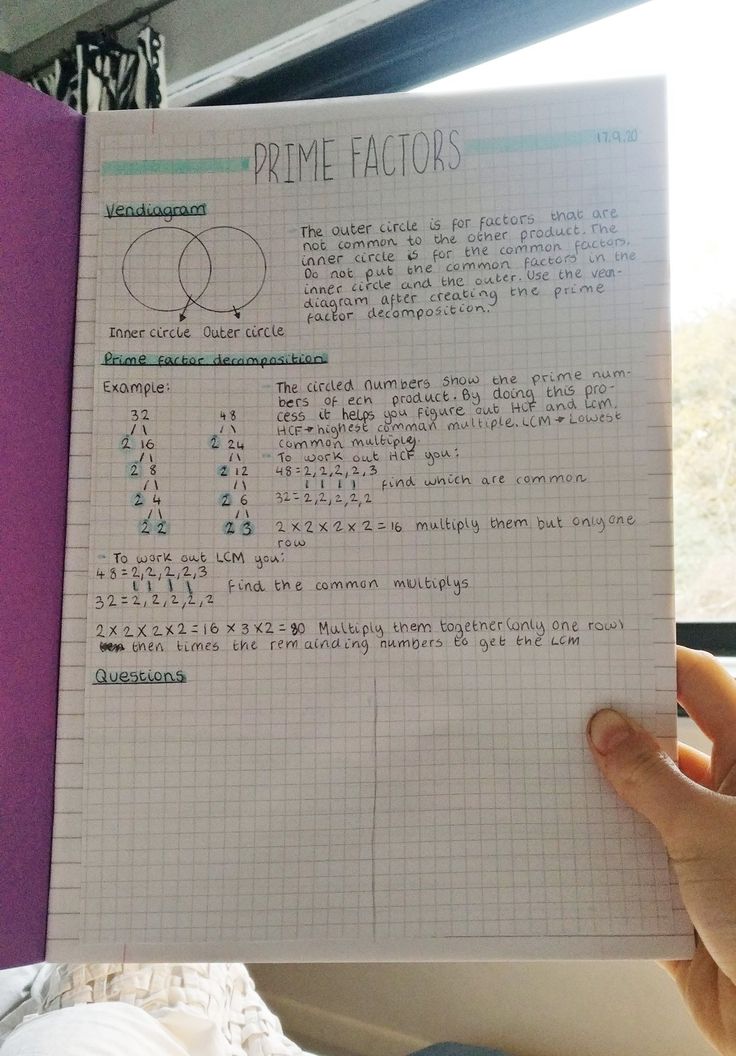 PRIME FACTORS
17.9.20
Vendiagram
The outer circle is for factors that are
not common to the other product. The
inner circle is for the common factors.
Do not put the common factors in the
inner circle and the outer. Use the ven-
diagram after creating the prime
factor decomposition.
Inner circle Outer circle
Prime factor decomposition
Example:
32
2 16
2 8
2 4
2 2
48
2 24
2 12
2 6
2 3
The circled numbers show the prime num-
bers of ech product. By doing this pro-
cess it helps you figure out HCF and Lcm.
HCF → highest comman multiple. LCM → Lowest
common multiple.
- To work out HCF you:
48 = 2, 2, 2, 2, 3
find which are common
32 = 2, 2, 2, 2, 2
2 × 2 × 2 × 2 = 16 multiply them but only one
row
- To work out LCM you:
48 = 2, 2, 2, 2, 3
find the common multiplys
32 = 2, 2, 2, 2, 2
2 × 2 × 2 × 2 = 16 × 3 × 2 = 80 Multiply them together (only one row)
then times the remainding numbers to get the LCM
Questions